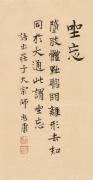 坐忘
墮肢體黜聰明離形去知
同於大通此謂坐忘
語出莊子大宗師